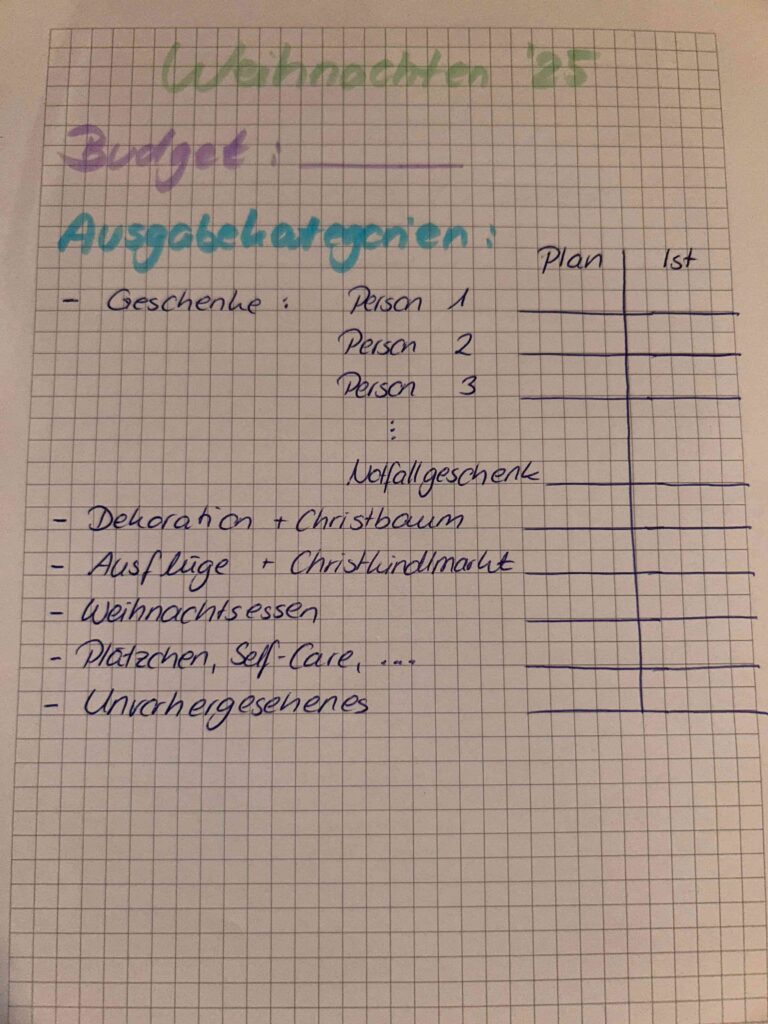 Weihnachten '25
Budget: ________
Ausgabekategorien:
Plan Ist
- Geschenke: Person 1
Person 2
Person 3
⋮
Notfallgeschenk
- Dekoration + Christbaum
- Ausflüge + Christkindlmarkt
- Weihnachtsessen
- Plätzchen, Self-Care, ...
- Unvorhergesehenes